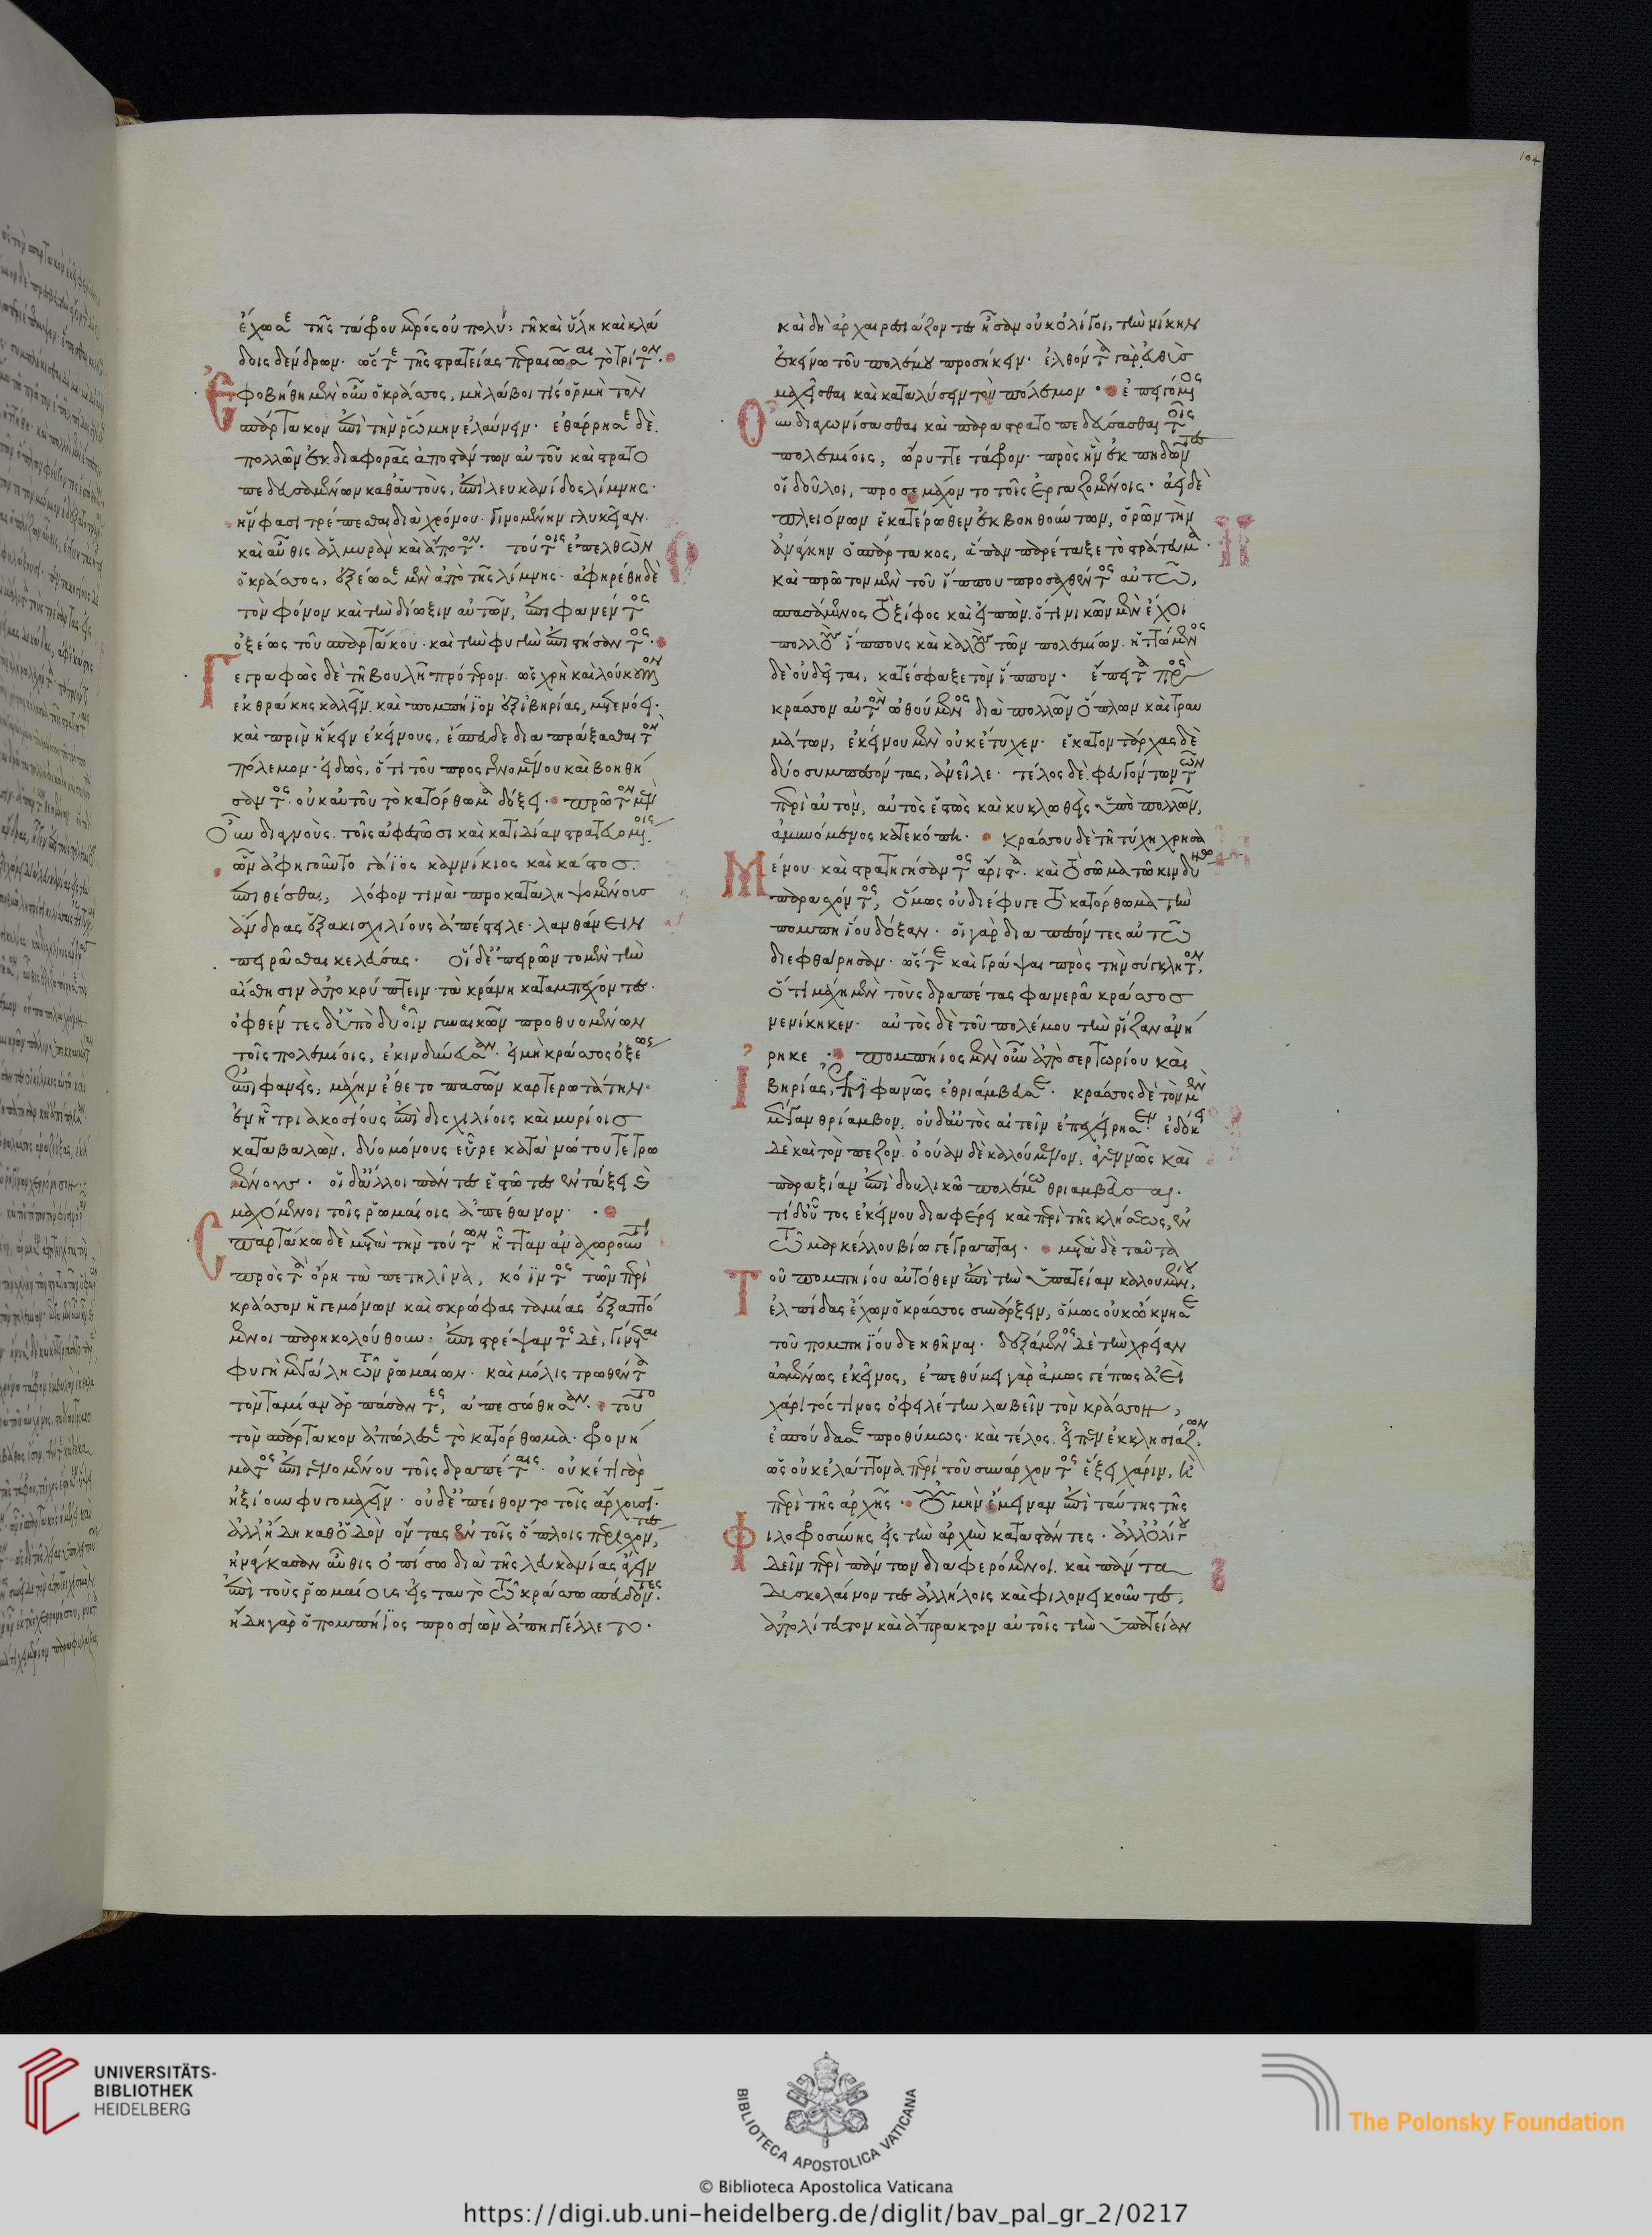 104
ἔχωσε τῆς τάφρου μέρος οὐ πολύ· γῇ καὶ ὕλῃ καὶ κλά
δοις δένδρων. ὥστε τῆς στρατείας περαιῶσαι τὸ τρίτον.
Ἐφοβήθη μὲν οὖν ὁ κράσσος, μὴ λάβοι τίς ὁρμὴ τὸν
σπάρτακον ἐπὶ τὴν ῥώμην ἐλαύνειν. ἐθάρρησε δὲ
πολλῶν ἐκ διαφορᾶς ἀποστάντων αὐτοῦ καὶ στρατο
πεδευσαμένων καθ' αὑτοὺς, ἐπὶ λευκανίδος λίμνης.
ἥν φασι τρέπεσθαι διὰ χρόνου. γινομένην γλυκεῖαν.
καὶ αὖθις ἁλμυρὰν καὶ ἄποτον. τούτοις ἐπελθὼν
ὁ κράσσος, ἐξέωσε μὲν ἀπὸ τῆς λίμνης. ἀφηρέθη δὲ
τὸν φόνον καὶ τὴν δίωξιν αὐτῶν, ἐπιφανέντος
ὀξέως τοῦ σπαρτάκου. καὶ τὴν φυγὴν ἐπιστήσαντος.
Γεγραφὼς δὲ τῇ βουλῇ πρότερον. ὡς χρὴ καὶ λούκουλλον
ἐκ θράκης καλεῖν. καὶ πομπήϊον ἐξ ἰβηρίας, μετενόει.
καὶ πρὶν ἥκειν ἐκείνους, ἔσπευδε διαπράξασθαι τὸν
πόλεμον. εἰδὼς, ὅτι τοῦ προσγενομένου καὶ βοηθή
σαντος. οὐκ αὐτοῦ τὸ κατόρθωμα δόξει. πρῶτον μὲν
οὖν διαγνοὺς. τοῖς ἀφεστῶσι καὶ κατιδίαν στρατευομένοις.
ὧν ἀφηγοῦντο γάϊος καννίκιος καὶ κάστος.
ἐπιθέσθαι, λόφον τινὰ προκαταληψομένους
ἄνδρας ἑξακισχιλίους ἀπέστειλε. λανθάνειν
πειρᾶσθαι κελεύσας. οἱ δ' ἐπειρῶντο μὲν τὴν
αἴσθησιν ἀποκρύπτειν. τὰ κράνη καταμπέχοντες.
ὀφθέντες δ' ὑπὸ δυοῖν γυναικῶν προθυομένων
τοῖς πολεμίοις, ἐκινδύνευσαν. εἰ μὴ κράσσος ὀξέως
ἐπιφανεὶς, μάχην ἔθετο πασῶν καρτερωτάτην.
ἐν ᾗ τριακοσίους ἐπὶ δισχιλίοις καὶ μυρίοις
καταβαλὼν, δύο μόνους εὗρε κατὰ νώτου τετρω
μένους. οἱ δ' ἄλλοι πάντες ἑστῶτες ἐν τάξει καὶ
μαχόμενοι τοῖς ῥωμαίοις ἀπέθανον.
Σπαρτάκω δὲ μετὰ τὴν τούτων ἧτταν ἀναχωροῦντι
πρὸς τὰ ὄρη τὰ πετηλῖνα, κόϊντος τῶν περὶ
κράσσον ἡγεμόνων καὶ σκρώφας ταμίας. ἐξαπτό
μενοι παρηκολούθουν. ἐπιστρέψαντος δὲ, γίνεται
φυγὴ μεγάλη τῶν ῥωμαίων. καὶ μόλις τρωθέντα
τὸν ταμίαν ἁρπάσαντες, ἀπεσώθησαν. τοῦτο
τὸν σπάρτακον ἀπώλεσε τὸ κατόρθωμα. φρονή
ματος ἐπιγενομένου τοῖς δραπέταις. οὐκέτι γὰρ
ἠξίουν φυγομαχεῖν. οὐδ' ἐπείθοντο τοῖς ἄρχουσι.
ἀλλ' ἤδη καθ' ὁδὸν ὄντας ἐν τοῖς ὅπλοις περισχόντες,
ἠνάγκασαν αὖθις ὀπίσω διὰ τῆς λευκανίας ἄγειν
ἐπὶ τοὺς ῥωμαίους εἰς ταυτὸ τῶ κράσσω σπεύδοντες.
ἤδη γὰρ ὁ πομπήϊος προσιὼν ἀπηγγέλλετο.
καὶ δὴ ἀρχαιρεσιάζοντες ἦσαν οὐκ ὀλίγοι, τὴν νίκην
ἐκείνω τοῦ πολέμου προσήκειν. ἐλθόντα γὰρ εὐθὺς
μαχεῖσθαι καὶ καταλύσειν τὸν πόλεμον. ἐπειγόμενος
οὖν διαγωνίσασθαι καὶ παραστρατοπεδεύσασθαι τοῖς
πολεμίοις, ὤρυττε τάφρον. πρὸς ἣν ἐκπηδῶντες
οἱ δοῦλοι, προσεμάχοντο τοῖς ἐργαζομένοις. ἀεὶ δὲ
πλειόνων ἑκατέρωθεν ἐκβοηθούντων, ὁρῶν τὴν
ἀνάγκην ὁ σπάρτακος, ἅπαν παρέταξε τὸ στράτευμα.
καὶ πρῶτον μὲν τοῦ ἵππου προσαχθέντος αὐτῶ,
σπασάμενος τὸ ξίφος καὶ εἰπὼν. ὅτι νικῶν μὲν ἔχοι
πολλοὺς ἵππους καὶ καλοὺς τῶν πολεμίων. ἡττώμενος
δὲ οὐ δεῖται, κατέσφαξε τὸν ἵππον. ἔπειτα πρὸς
κράσσον αὐτὸν ὠθούμενος διὰ πολλῶν ὅπλων καὶ τραυ
μάτων, ἐκείνου μὲν οὐκ ἔτυχεν. ἑκατοντάρχας δὲ
δύο συμπεσόντας, ἀνεῖλε. τέλος δὲ. φευγόντων τῶν
περὶ αὐτὸν, αὐτὸς ἑστὼς καὶ κυκλωθεὶς ὑπὸ πολλῶν,
ἀμυνόμενος κατεκόπη. Κράσσου δὲ τῇ τύχη χρησα
μένου. καὶ στρατηγήσαντος ἄριστα. καὶ τὸ σῶμα τῶ κινδύνω
παρασχόντος, ὅμως οὐ διέφυγε τὸ κατόρθωμα τὴν
πομπηΐου δόξαν. οἱ γὰρ διαπεσόντες αὐτῶ
διεφθάρησαν. ὥστε καὶ γράψαι πρὸς τὴν σύγκλητον,
ὅτι μάχη μὲν τοὺς δραπέτας φανερᾶ κράσσος
νενίκηκεν. αὐτὸς δὲ τοῦ πολέμου τὴν ῥίζαν ἀνή
ρηκε. πομπήιος μὲν οὖν ἀπὸ σερτωρίου καὶ
Ἰβηρίας, ἐπιφανῶς ἐθριάμβευσε. κράσσος δὲ τὸν μὲν
μέγαν θρίαμβον, οὐδ' αὐτὸς αἰτεῖν ἐπεχείρησεν. ἐδόκει
δὲ καὶ τὸν πεζὸν. ὀουὰν δὲ καλούμενον, ἀγεννῶς καὶ
παραξίαν ἐπὶ δουλικῶ πολέμω θριαμβεῦσαι.
τί δ' οὗτος ἐκείνου διαφέρει καὶ περὶ τῆς κλήσεως, ἐν
τῶ μαρκέλλου βίω γέγραπται. μετὰ δὲ ταῦτα
Τοῦ πομπηίου αὐτόθεν ἐπὶ τὴν ὑπατείαν καλουμένου,
ἐλπίδας ἔχων ὁ κράσσος συνάρξειν, ὅμως οὐκ ὤκνησε
τοῦ πομπηΐου δεηθῆναι. δεξάμενος δὲ τὴν χρείαν
ἀσμένως ἐκεῖνος, ἐπεθύμει γὰρ ἁμῶς γέ πως ἀεὶ
χάριτός τινος ὀφειλέτην λαβεῖν τὸν κράσσον,
ἐσπούδασε προθύμως. καὶ τέλος. εἶπεν ἐκκλησιάζων,
ὡς οὐκ ἐλάττονα περὶ τοῦ συνάρχοντος ἕξει χάριν, ἢ
περὶ τῆς ἀρχῆς. οὐ μὴν ἔμειναν ἐπὶ ταύτης τῆς
Φιλοφροσύνης εἰς τὴν ἀρχὴν καταστάντες. ἀλλ' ὀλίγου
δεῖν περὶ πάντων διαφερόμενοι. καὶ πάντα
δυσκολαίνοντες ἀλλήλοις καὶ φιλονεικοῦντες,
ἀπολίτευτον καὶ ἄπρακτον αὐτοῖς τὴν ὑπατείαν
UNIVERSITÄTS-
BIBLIOTHEK
HEIDELBERG
BIBLIOTECA APOSTOLICA VATICANA
The Polonsky Foundation
© Biblioteca Apostolica Vaticana
https://digi.ub.uni-heidelberg.de/diglit/bav_pal_gr_2/0217